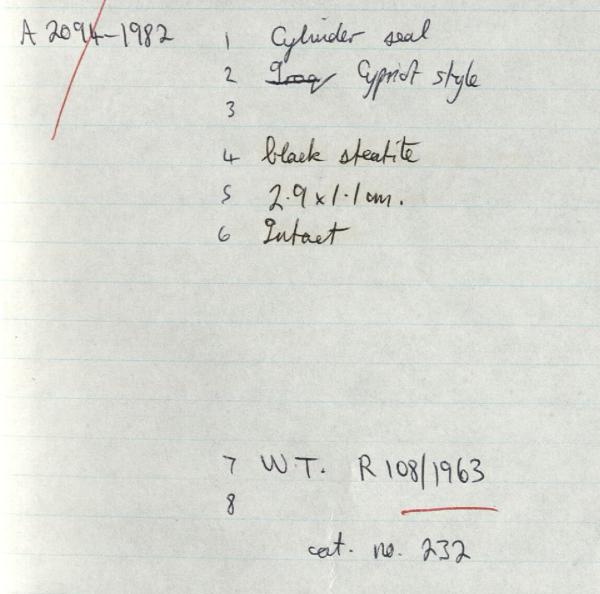 A 2094-1982 1 Cylinder seal
2 Iraq Cypriot style
3
4 black steatite
5 2.9 x 1.1 cm.
6 Intact
7 W.T. R 108/1963
8
cat. no. 232